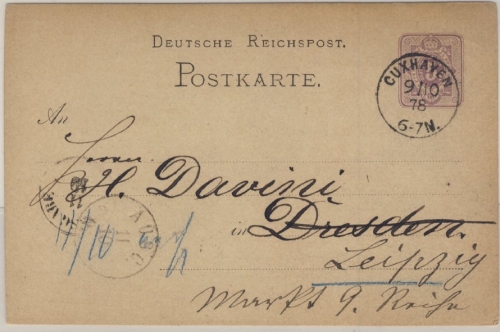 DEUTSCHE REICHSPOST.
POSTKARTE.
CUXHAVEN
9/10
78
6-7N.
An
Herrn
H. Davini
in Dresden.
Leipzig
11/10
Markt 9. Reihe